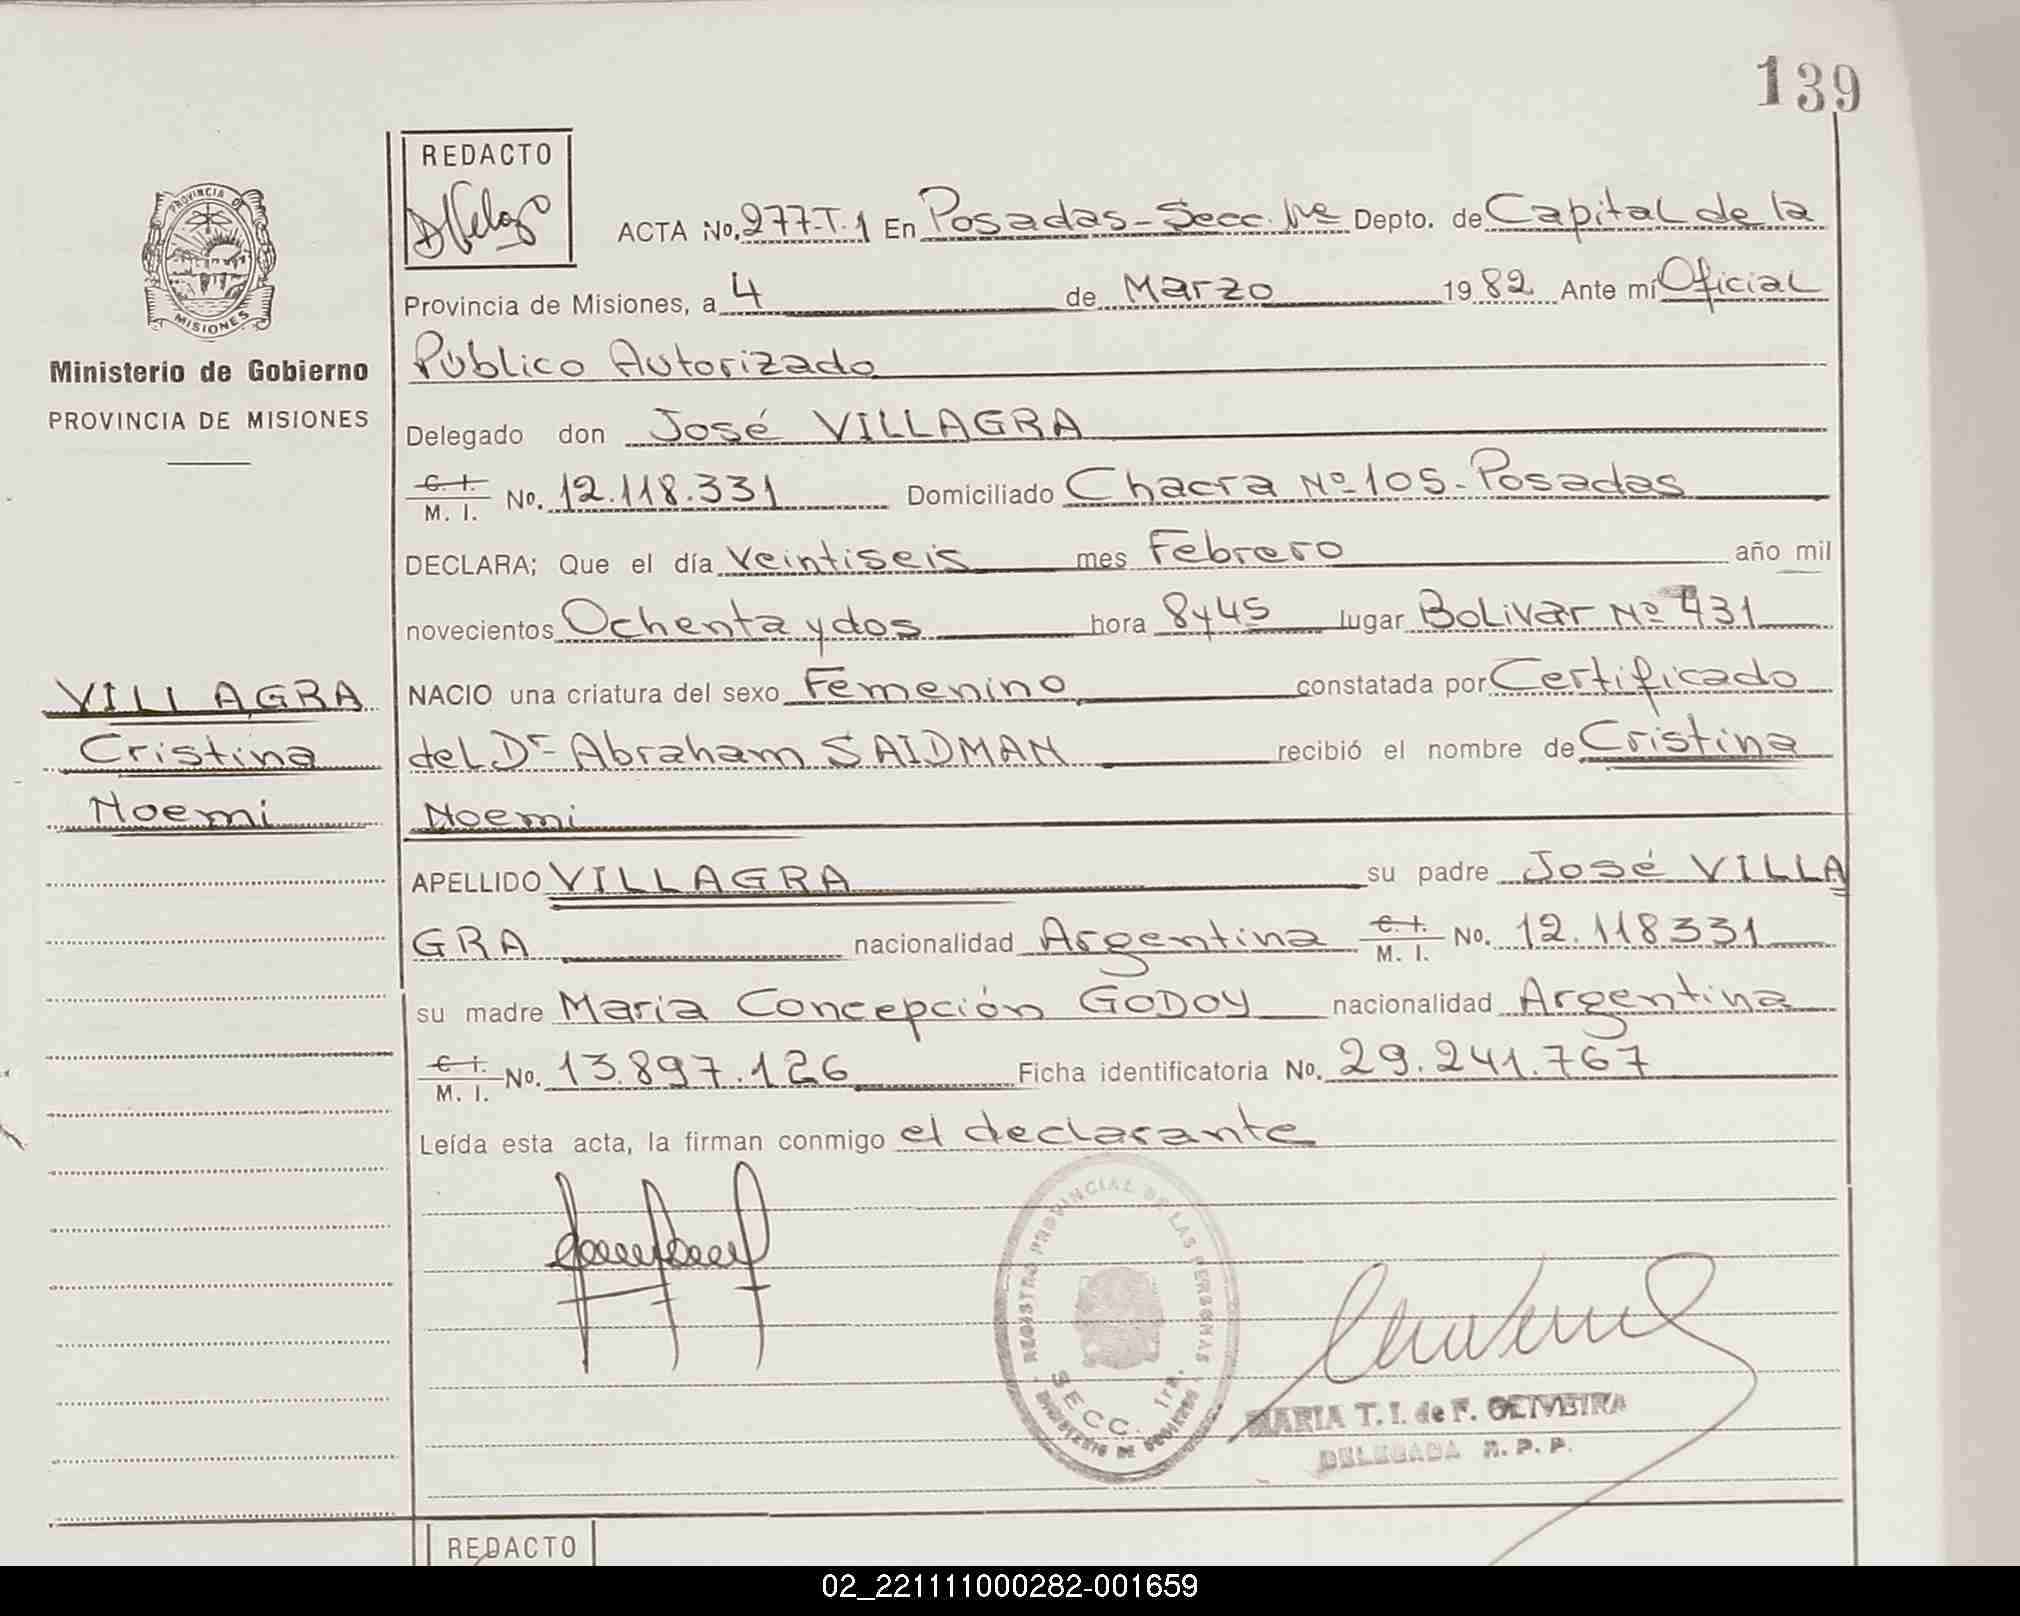 139
REDACTO
PROVINCIA DE
MISIONES
Ministerio de Gobierno
PROVINCIA DE MISIONES
ACTA No. 277-T.1 En Posadas-Secc. 1ra Depto. de Capital de la
Provincia de Misiones, a 4 de Marzo 1982 Ante mí Oficial
Público Autorizado
Delegado don José VILLAGRA
C. I. M. I. No. 12.118.331 Domiciliado Chacra Nº 105-Posadas
DECLARA; Que el día veintiseis mes Febrero año mil
novecientos Ochenta y dos hora 8y45 lugar Bolivar Nº 431
NACIO una criatura del sexo Femenino constatada por Certificado
del Dr Abraham SAIDMAN recibió el nombre de Cristina
Noemi
VILLAGRA
Cristina
Noemi
APELLIDO VILLAGRA su padre José VILLA
GRA nacionalidad Argentina C. I. M. I. No. 12.118331
su madre Maria Concepción GODOY nacionalidad Argentina
C. I. M. I. No. 13.897.126 Ficha identificatoria No. 29.241.767
Leída esta acta, la firman conmigo el declarante
REGISTRO PROVINCIAL DE LAS PERSONAS
SECC. 1ra.
MINISTERIO DE GOBIERNO
MARIA T. I. de F. OLIVEIRA
DELEGADA R. P. P.
REDACTO
02_221111000282-001659